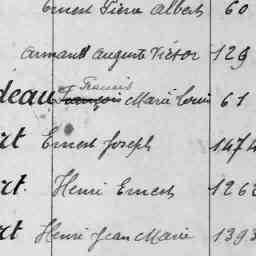 Ernest Pierre Albert 60
Armand Auguste Victor 129
Francis
deau François Marie Louis 61
rt Ernest Joseph 1474
rt. Henri Ernest 1262
rt Henri Jean Marie 1393